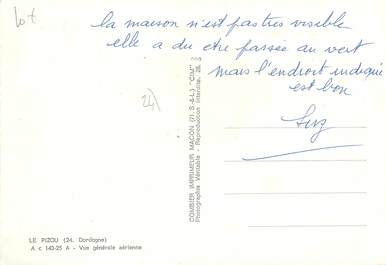 lot
la maison n'est pas très visible
elle a du etre passée au vert
mais l'endroit indiqué
est bon
24)
COMBIER IMPRIMEUR MACON (71. S.-&-L.) "CIM"
Photographie Véritable - Reproduction interdite.
LE PIZOU (24. Dordogne)
A c 143-25 A - Vue générale aérienne